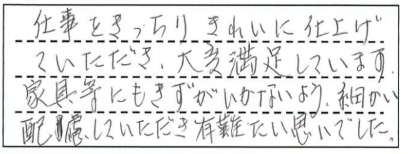 仕事をきっちりきれいに仕上げ
ていただき、大変満足しています。
家具等にもきずがいかないよう、細かい
配慮していただき有難たい思いでした。